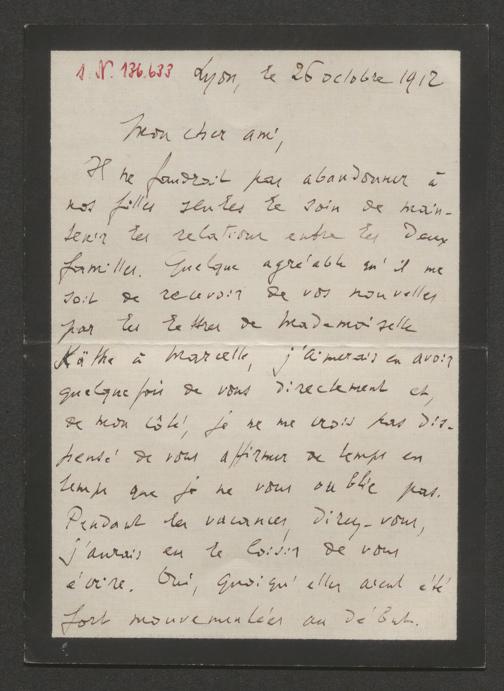 A. N. 136.633 Lyon, le 26 octobre 1912
Mon cher ami,
Il ne faudrait pas abandonner à
nos filles seules le soin de main-
tenir les relations entre les deux
familles. Quelque agréable qu'il me
soit de recevoir de vos nouvelles
par les lettres de Mademoiselle
Käthe à Marcelle, j'aimerais en avoir
quelquefois de vous directement et,
de mon côté, je ne me crois pas dis-
pensé de vous affirmer de temps en
temps que je ne vous oublie pas.
Pendant les vacances, direz-vous,
j'aurais eu le loisir de vous
écrire. Oui, quoiqu'elles aient été
fort mouvementées au début.